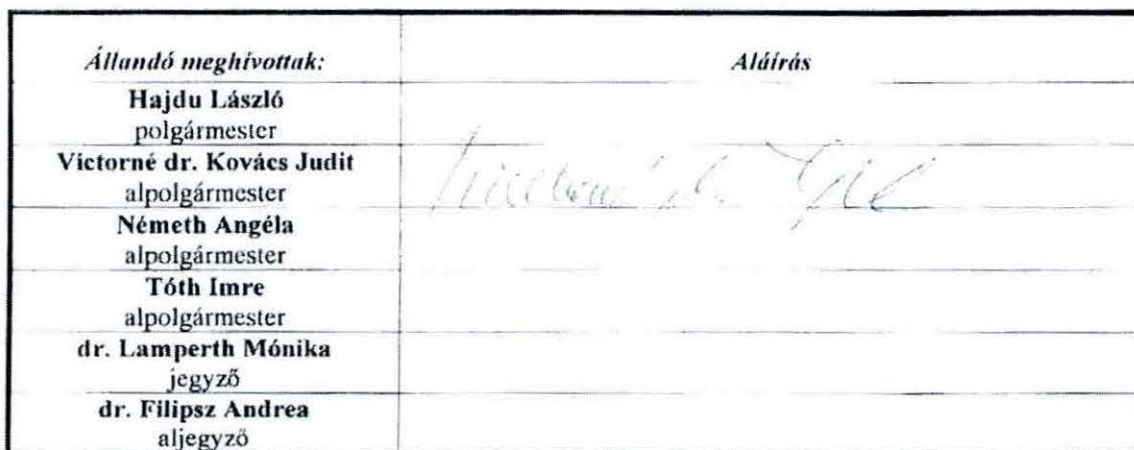 Állandó meghívottak: Aláírás
Hajdu László
polgármester
Victorné dr. Kovács Judit
alpolgármester
Németh Angéla
alpolgármester
Tóth Imre
alpolgármester
dr. Lamperth Mónika
jegyző
dr. Filipsz Andrea
aljegyző